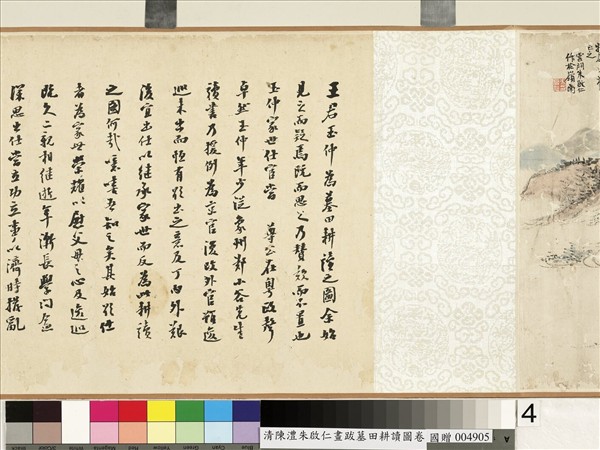 朱啟仁
作於嶺南
王君玉仲為墓田耕讀之圖余始
見之而疑焉既而思之乃贊歎而不置也
玉仲家世仕宦 尊公在粵政聲
卓然玉仲年少從象州鄭小谷先生
讀書乃援例為京官後改外官猶遲
迴未出而恒有欲出之意及丁內外艱
後宜出仕以繼承家世而反為此耕讀
之圖何哉噫嘻吾知之矣其始欲仕
者為家世榮耀以慰父母之心及遲迴
既久二親相繼逝年漸長學問益
深思出仕當立功立事以濟時撥亂
4
清陳澧朱啟仁畫跋墓田耕讀圖卷 國贈 004905